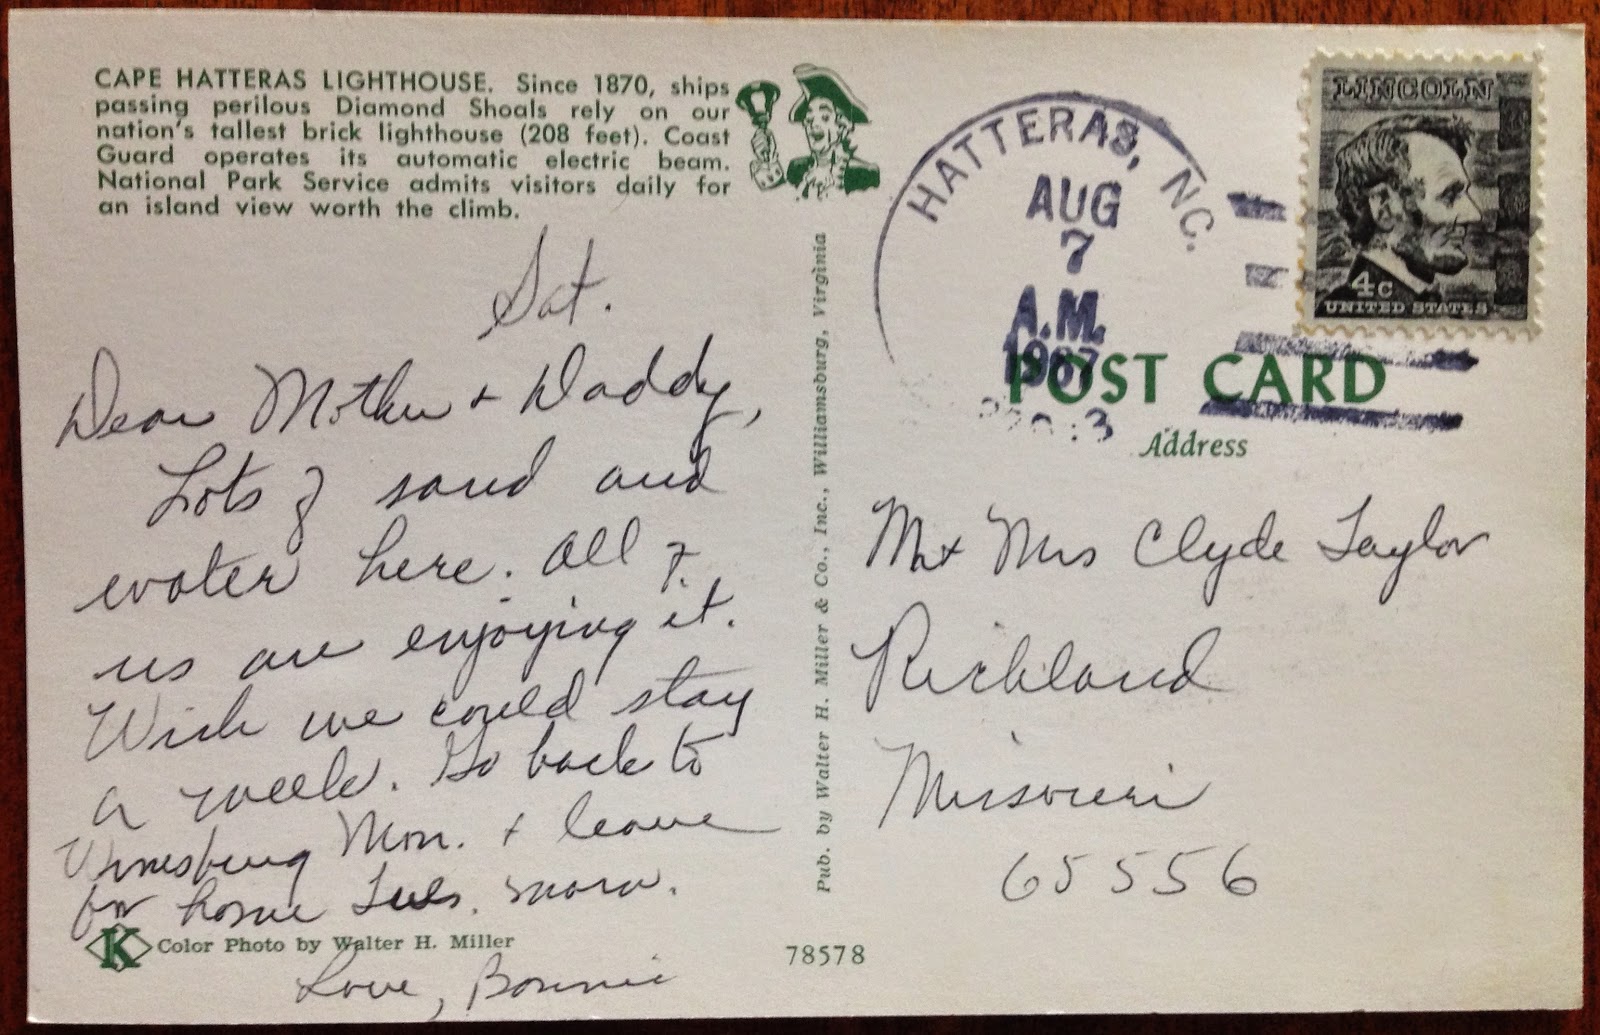 CAPE HATTERAS LIGHTHOUSE. Since 1870, ships
passing perilous Diamond Shoals rely on our
nation's tallest brick lighthouse (208 feet). Coast
Guard operates its automatic electric beam.
National Park Service admits visitors daily for
an island view worth the climb.
Sat.
Dear Mother + Daddy,
Lots of sand and
water here. All of
us are enjoying it.
Wish we could stay
a week. Go back to
Mon. + leave
for home Tues. morn.
Love, Bonnie
Color Photo by Walter H. Miller
K
78578
Pub. by Walter H. Miller & Co., Inc., Williamsburg, Virginia
HATTERAS, NC.
AUG
7
A.M.
1967
LINCOLN
4c
UNITED STATES
POST CARD
Address
Mr + Mrs Clyde Taylor
Richland
Missouri
65556